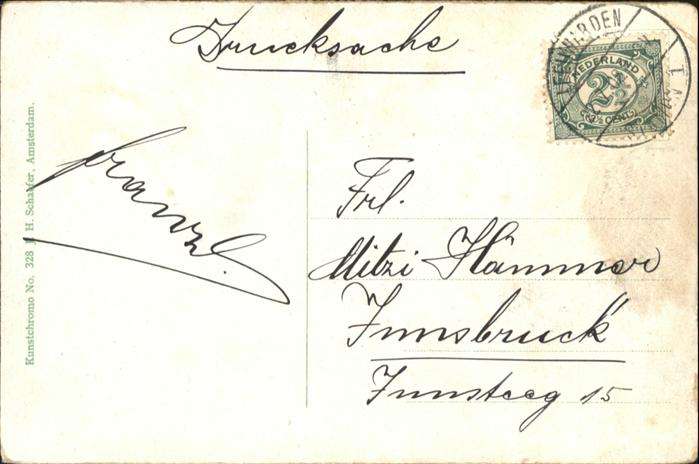 Drucksache
LEEUWARDEN
NEDERLAND
2½
CENT
Franzl.
Frl.
Mitzi Hämmer
Innsbruck
Innsteeg 15
Kunstchromo No. 328 H. Schaefer, Amsterdam.